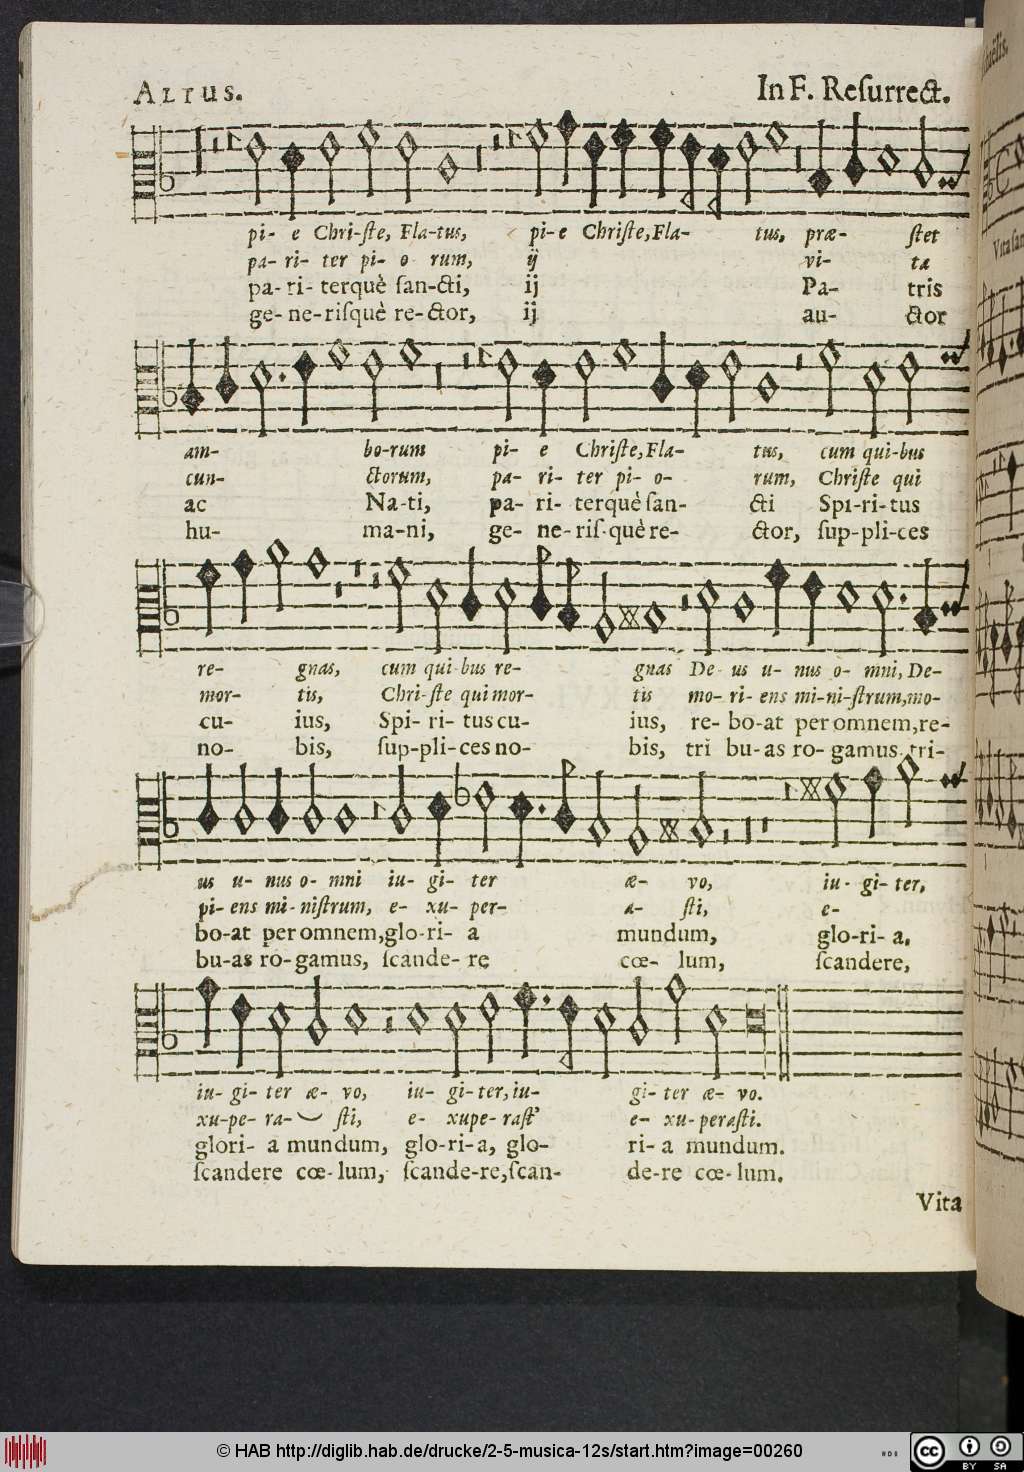 ALTUS. In F. Reſurrect.
pi- e Chri-ſte, Fla-tus, pi-e Chriſte, Fla- tus, præ- ſtet
pa-ri-ter pi- o rum, ij vi- ta
pa-ri-terquè ſan-cti, ij Pa- tris
ge-ne-riſquè re-ctor, ij au- ctor
am- bo-rum pi- e Chriſte, Fla- tus, cum qui-bus
cun- ctorum, pa- ri- ter pi- o- rum, Chriſte qui
ac Na-ti, pa- ri- terquè ſan- cti Spi-ri-tus
hu- ma-ni, ge- ne-riſ-què re- ctor, ſup-pli-ces
re- gnas, cum qui-bus re- gnas De- us u- nus o- mni, De-
mor- tis, Chri-ſte qui mor- tis mo- ri- ens mi-ni-ſtrum, mo-
cu- ius, Spi- ri- tus cu- ius, re- bo-at per omnem, re-
no- bis, ſup-pli-ces no- bis, tri bu-as ro-gamus tri-
us u- nus o- mni iu- gi- ter æ- vo, iu- gi- ter,
pi-ens mi-niſtrum, e- xu- per- a- ſti, e-
bo-at per omnem, glo-ri- a mundum, glo-ri-a,
bu-as ro-gamus, ſcande- re cœ- lum, ſcandere,
iu- gi- ter æ- vo, iu- gi- ter, iu- gi- ter æ- vo.
xu-pe-ra- ſti, e- xupe-raſt' e- xu-peraſti.
glori- a mundum, glo-ri-a, glo- ri-a mundum.
ſcandere cœ-lum, ſcande-re, ſcan- de-re cœ-lum.
Vita
© HAB http://diglib.hab.de/drucke/2-5-musica-12s/start.htm?image=00260
cc BY SA